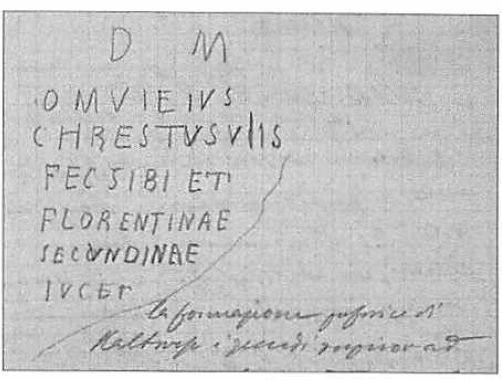 D M
OMVIEIVS
CHRESTVSVIIS
FEC SIBI ET
FLORENTINAE
SECVNDINAE
IVCET
la formazione di
ad